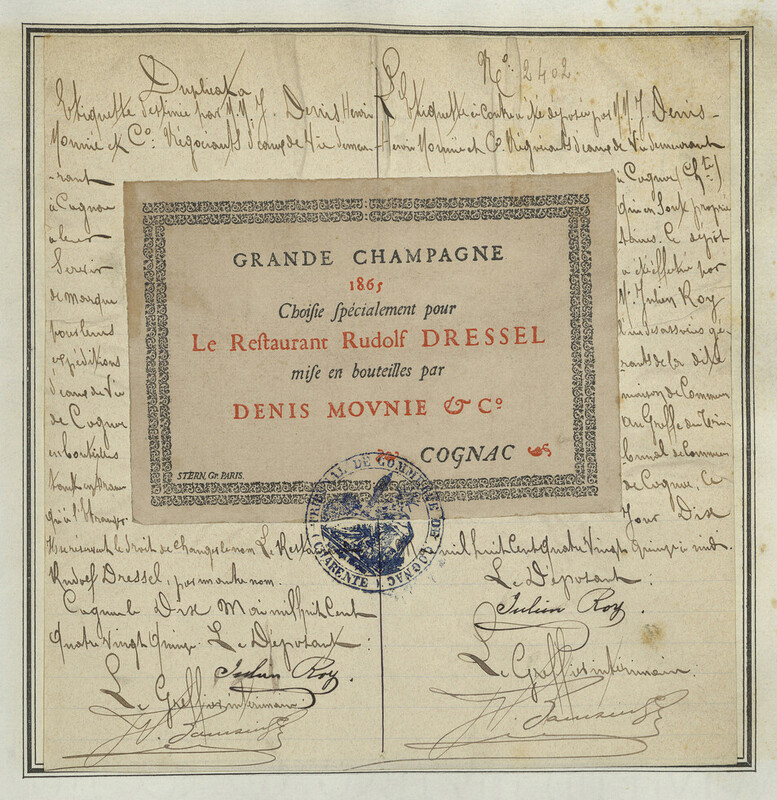 Duplicata
Etiquette destinée par MM. J. Denis Henri
Mounié et Co: Négociants d'eaux de Vie demeu-
-rant
à Cognac
à leur
Servir
de marque
pour leurs
expéditions
d'eaux de Vie
de Cognac
en bouteilles
tant en France
qu'à l'Etranger
Ils réservent le droit de changer le nom Le Rest
Rudolf Dressel, par un autre nom.
Cognac le Dix Mai mil huit Cent
quatre Vingt Quinze Le Déposant:
Julien Roy.
Le Greffier intérimaire:
GRANDE CHAMPAGNE
1865
Choisie spécialement pour
Le Restaurant Rudolf DRESSEL
mise en bouteilles par
DENIS MOVNIE & Co
COGNAC
STERN, Gr. PARIS.
TRIBUNAL DE COMMERCE DE COGNAC
(CHARENTE)
No. 2402.
L'Etiquette ci contre a été déposée par MM. J. Denis-
Henri Mounié et Co Négociants d'eaux de Vie demeurant
à Cognac (Chte)
qui en sont proprié
taires. Ce dépôt
a été effectué par
Mr. Julien Roy
l'un des associés gé
rants de la dite
maison de Commerce
au Greffe du Tri
bunal de Commerce
de Cognac, Ce
Jour Dix
mil huit Cent Quatre Vingt Quinze à midi.
Le Déposant:
Julien Roy.
Le Greffier intérimaire: